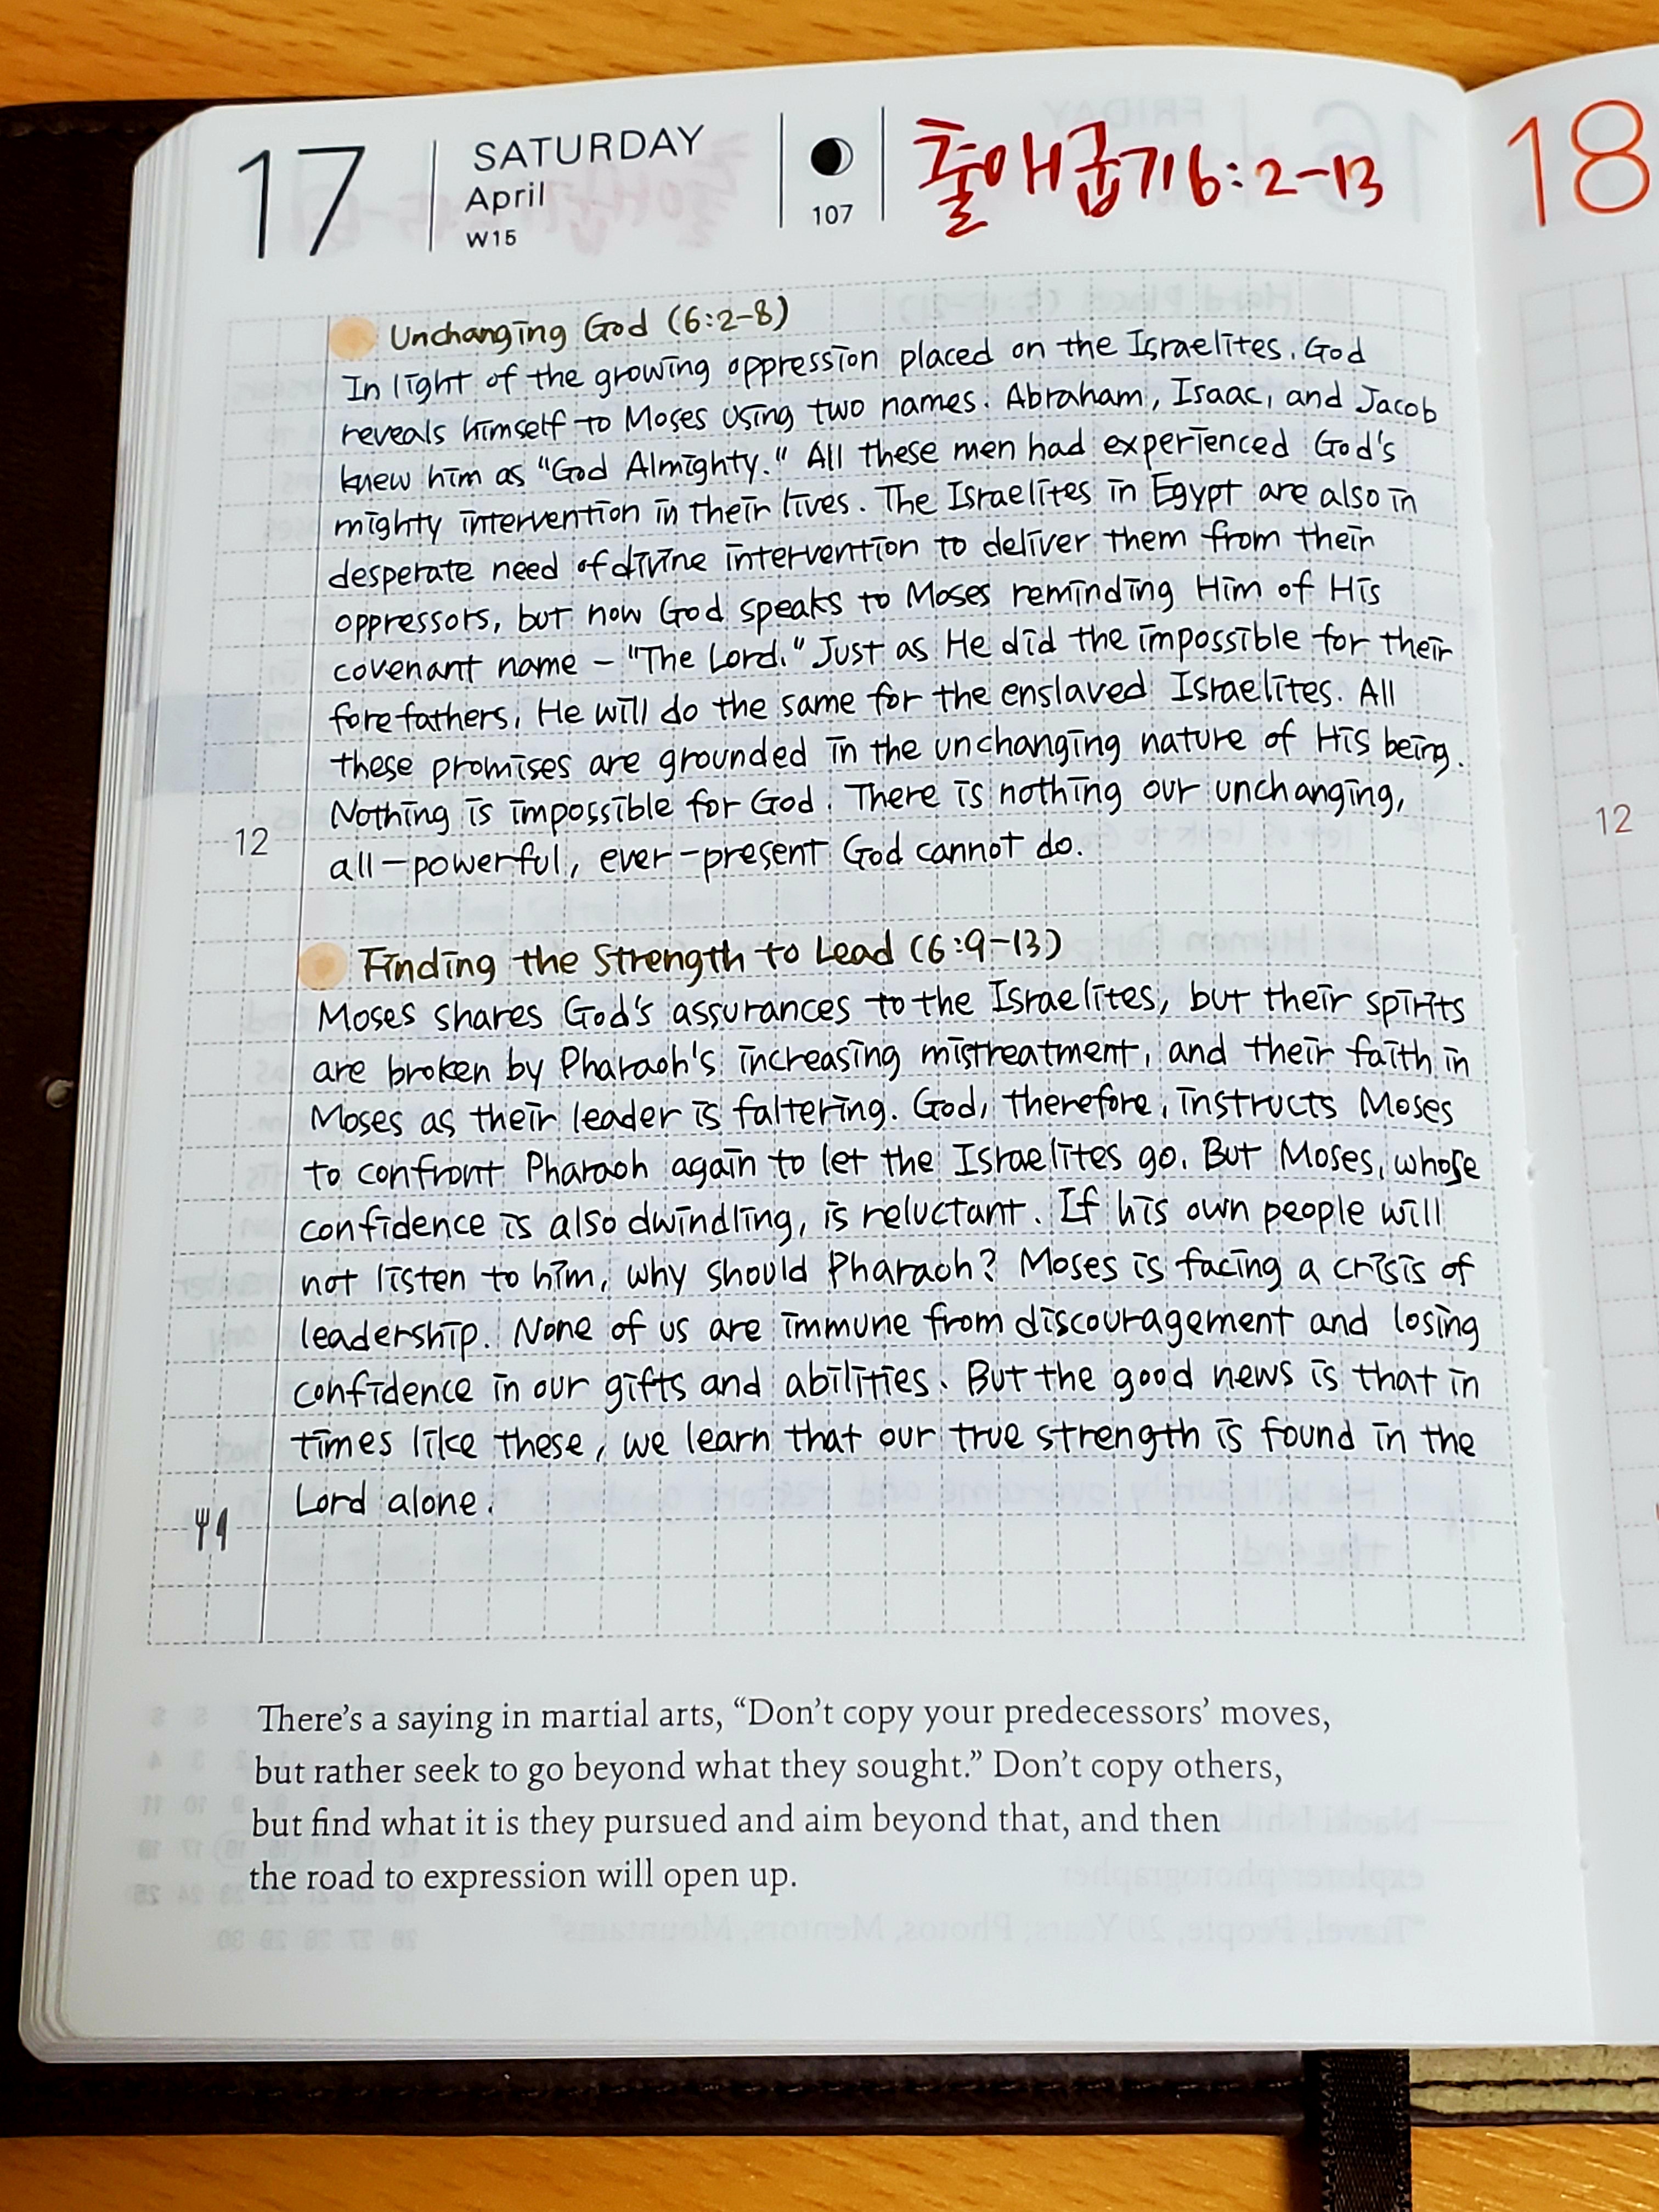 17
SATURDAY
April
W15
107
출애굽기 6:2-13
18
Unchanging God (6:2-8)
In light of the growing oppression placed on the Israelites. God
reveals himself to Moses using two names. Abraham, Isaac, and Jacob
knew him as "God Almighty." All these men had experienced God's
mighty intervention in their lives. The Israelites in Egypt are also in
desperate need of divine intervention to deliver them from their
oppressors, but now God speaks to Moses reminding Him of His
covenant name - "The Lord." Just as He did the impossible for their
forefathers, He will do the same for the enslaved Israelites. All
these promises are grounded in the unchanging nature of His being.
Nothing is impossible for God. There is nothing our unchanging,
12
all-powerful, ever-present God cannot do.
12
Finding the Strength to Lead (6:9-13)
Moses shares God's assurances to the Israelites, but their spirits
are broken by Pharaoh's increasing mistreatment, and their faith in
Moses as their leader is faltering. God, therefore, instructs Moses
to confront Pharaoh again to let the Israelites go. But Moses, whose
confidence is also dwindling, is reluctant. If his own people will
not listen to him, why should Pharaoh? Moses is facing a crisis of
leadership. None of us are immune from discouragement and losing
confidence in our gifts and abilities. But the good news is that in
times like these, we learn that our true strength is found in the
Lord alone.
There's a saying in martial arts, “Don't copy your predecessors' moves,
but rather seek to go beyond what they sought.” Don't copy others,
but find what it is they pursued and aim beyond that, and then
the road to expression will open up.